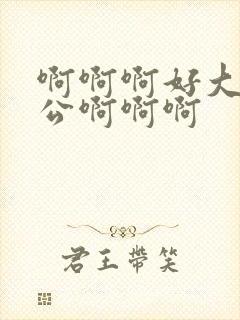 啊啊啊好大
公啊啊啊
君王带笑